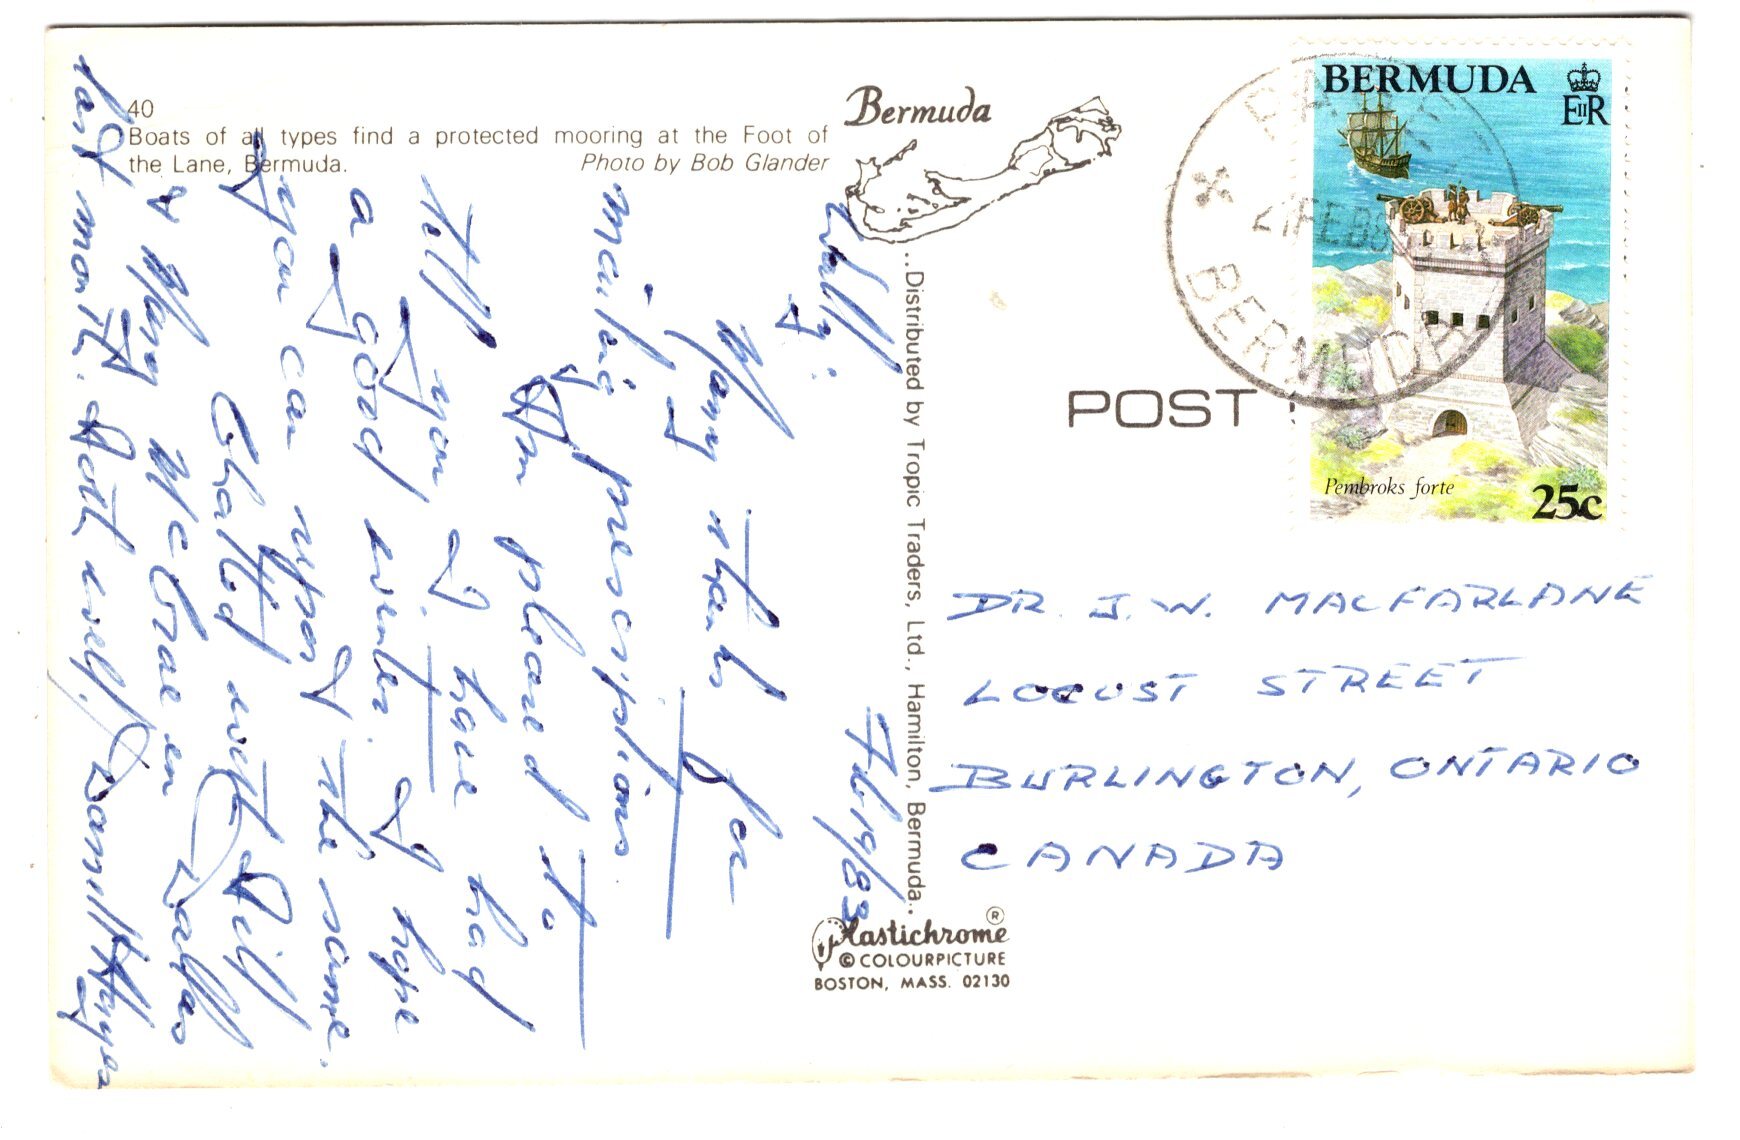 40
Boats of all types find a protected mooring at the Foot of
the Lane, Bermuda. Photo by Bob Glander
Bermuda
..Distributed by Tropic Traders, Ltd., Hamilton, Bermuda..
Plastichrome ®
© COLOURPICTURE
BOSTON, MASS. 02130
POST
BERMUDA
EIIR
Pembroks forte
25c
BERMUDA
Feb 19/83
Wally:
Many thanks for
mailing prescriptions
Am pleased to
tell you I have had
a good winter. I hope
you can report the same.
Chatted with Bill
& Mary McCrae in Dallas
last month. Both well.
DR. J. W. MACFARLANE
LOCUST STREET
BURLINGTON, ONTARIO
CANADA